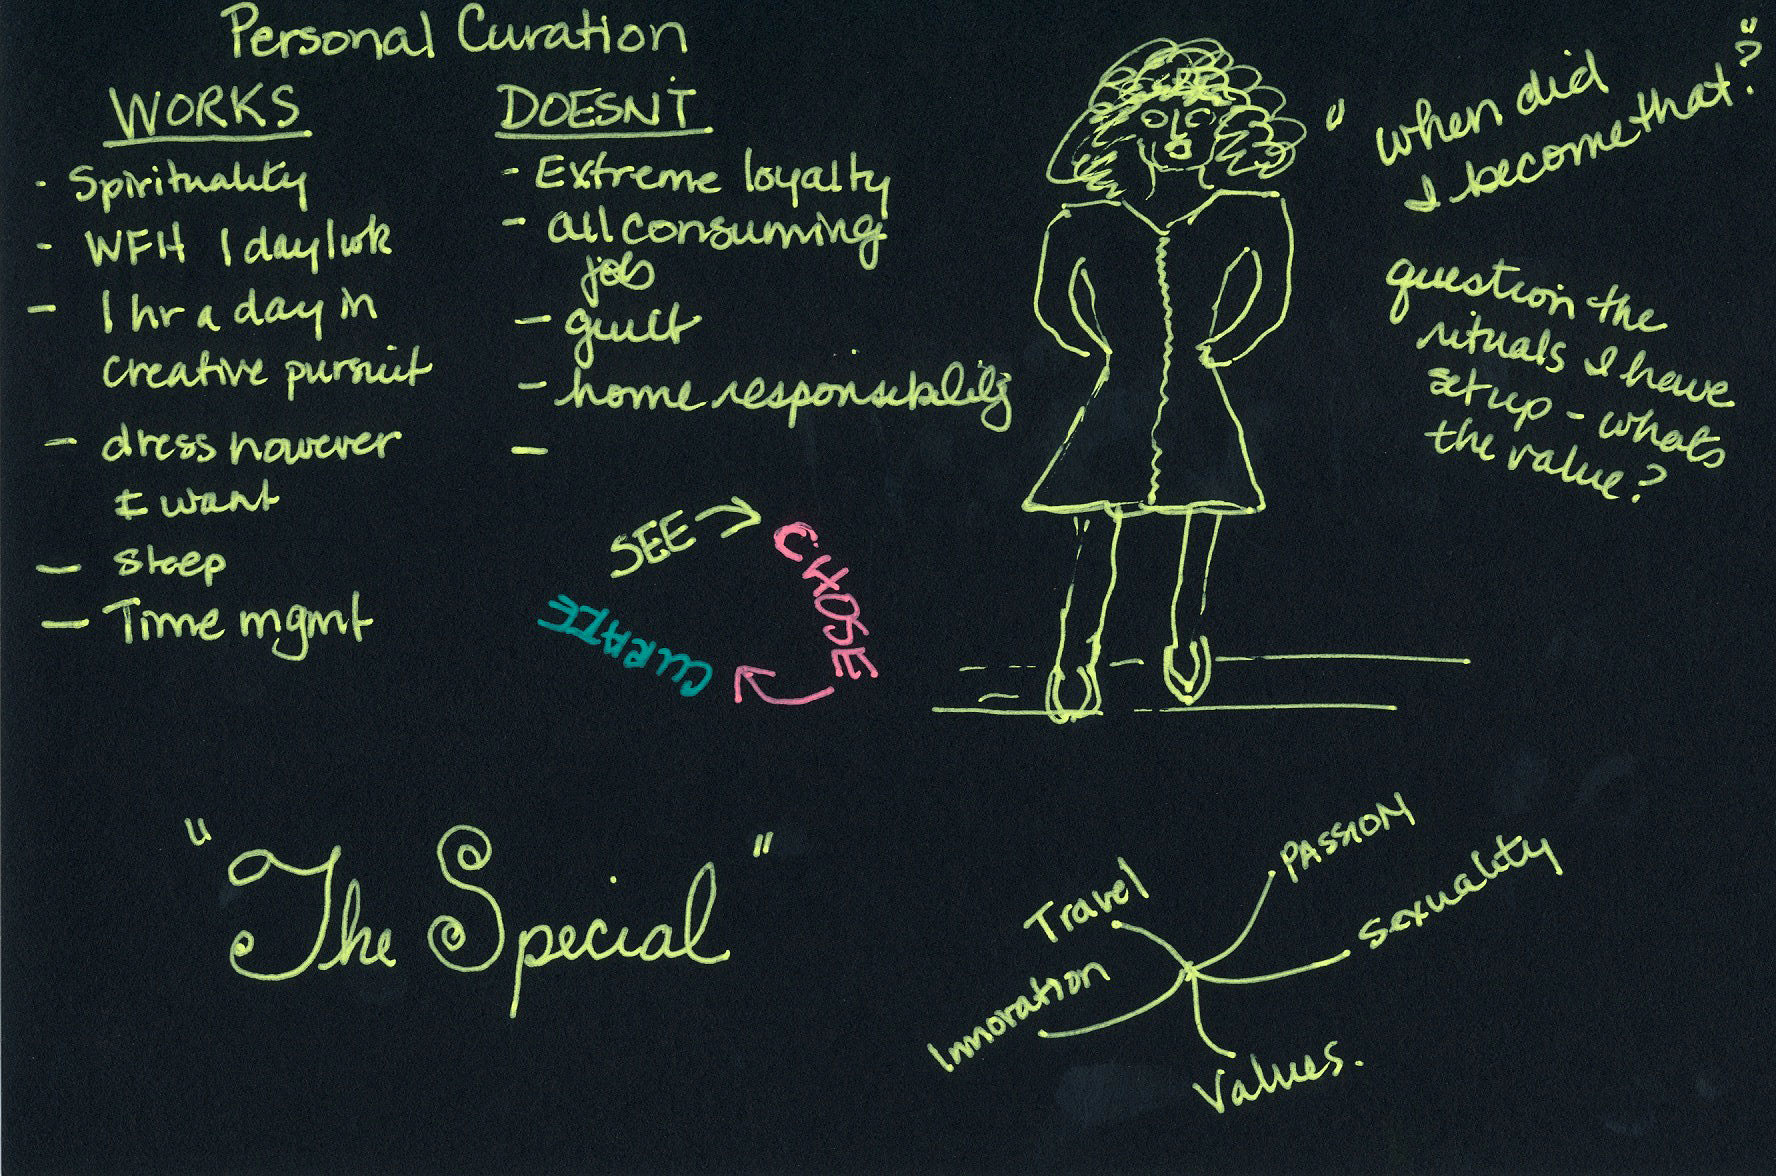 Personal Curation
WORKS
- Spirituality
- WFH 1 day/wk
- 1 hr a day in
creative pursuit
- dress however
I want
- sleep
- Time mgmt
DOESNT
- Extreme loyalty
- all consuming
job
- guilt
- home responsibility
-
SEE
CHOSE
CURATE
"when did
I become that?"
question the
rituals I have
set up - whats
the value?
"The Special"
Travel
PASSION
Sexuality
Innovation
Values.